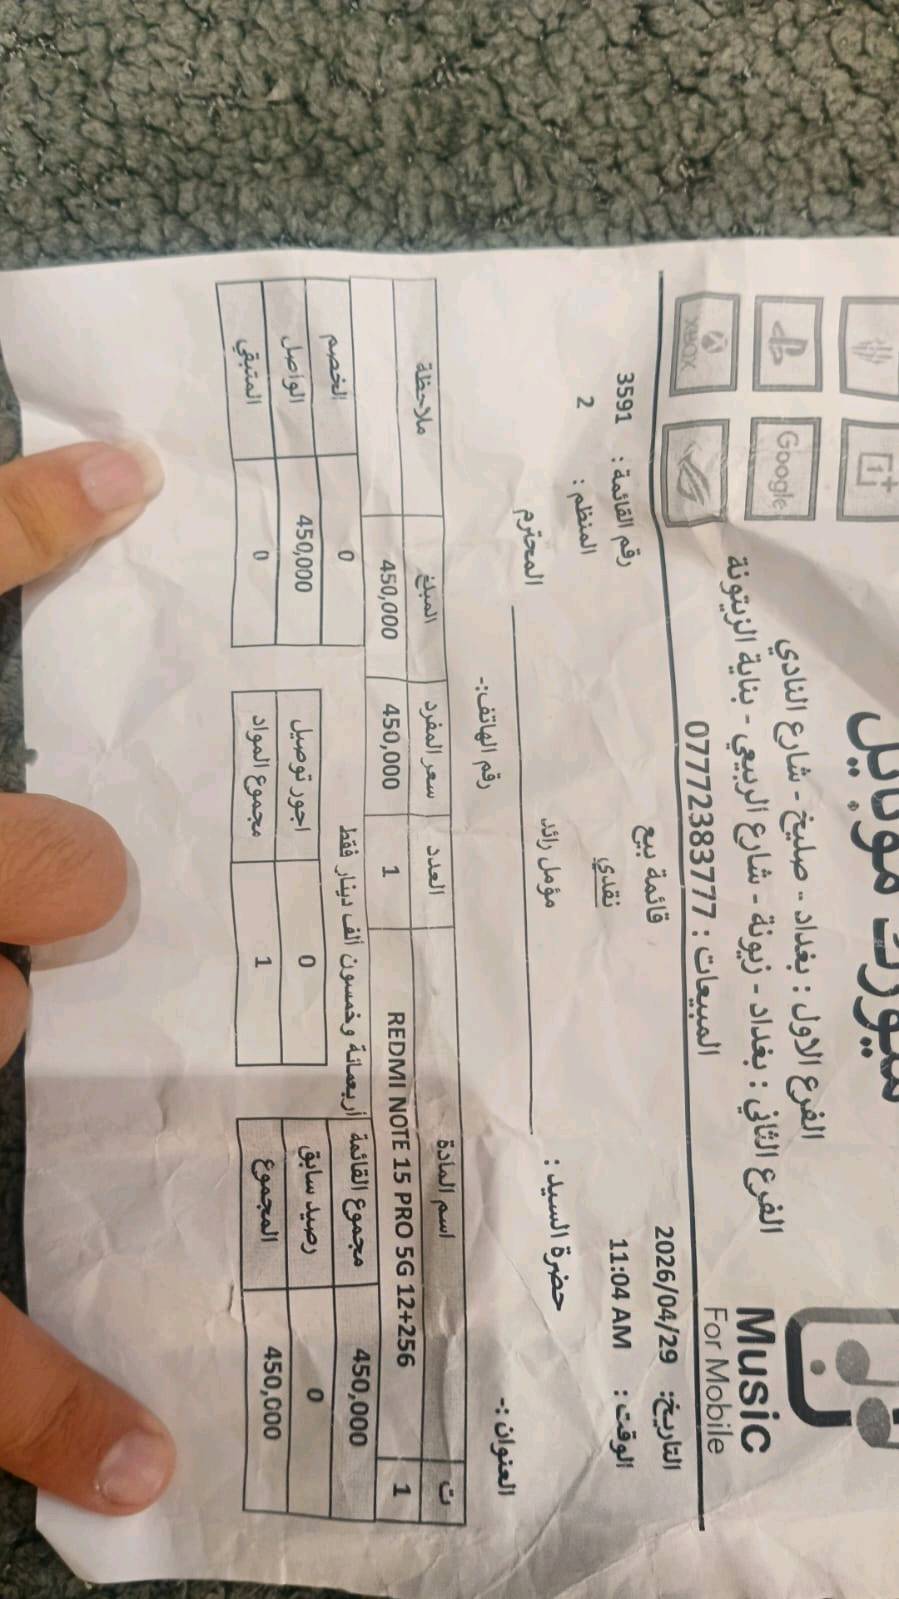 موبايل
Music
For Mobile
1+
Google
XBOX
الفرع الاول : بغداد - صليخ - شارع النادي
الفرع الثاني : بغداد - زيونة - شارع الربيعي - بناية الزيتونة
المبيعات : 07772383777
التاريخ: 2026/04/29
قائمة بيع
رقم القائمة : 3591
الوقت : 11:04 AM
نقدي
المنظم : 2
حضرة السيد : مؤمل رائد المحترم
العنوان :-
رقم الهاتف:-
ت اسم المادة العدد سعر المفرد المبلغ ملاحظة
1 REDMI NOTE 15 PRO 5G 12+256 1 450,000 450,000
مجموع القائمة 450,000 اربعمائة وخمسون الف دينار فقط
الخصم 0
رصيد سابق 0
اجور توصيل 0
الواصل 450,000
المجموع 450,000
مجموع المواد 1
المتبقي 0